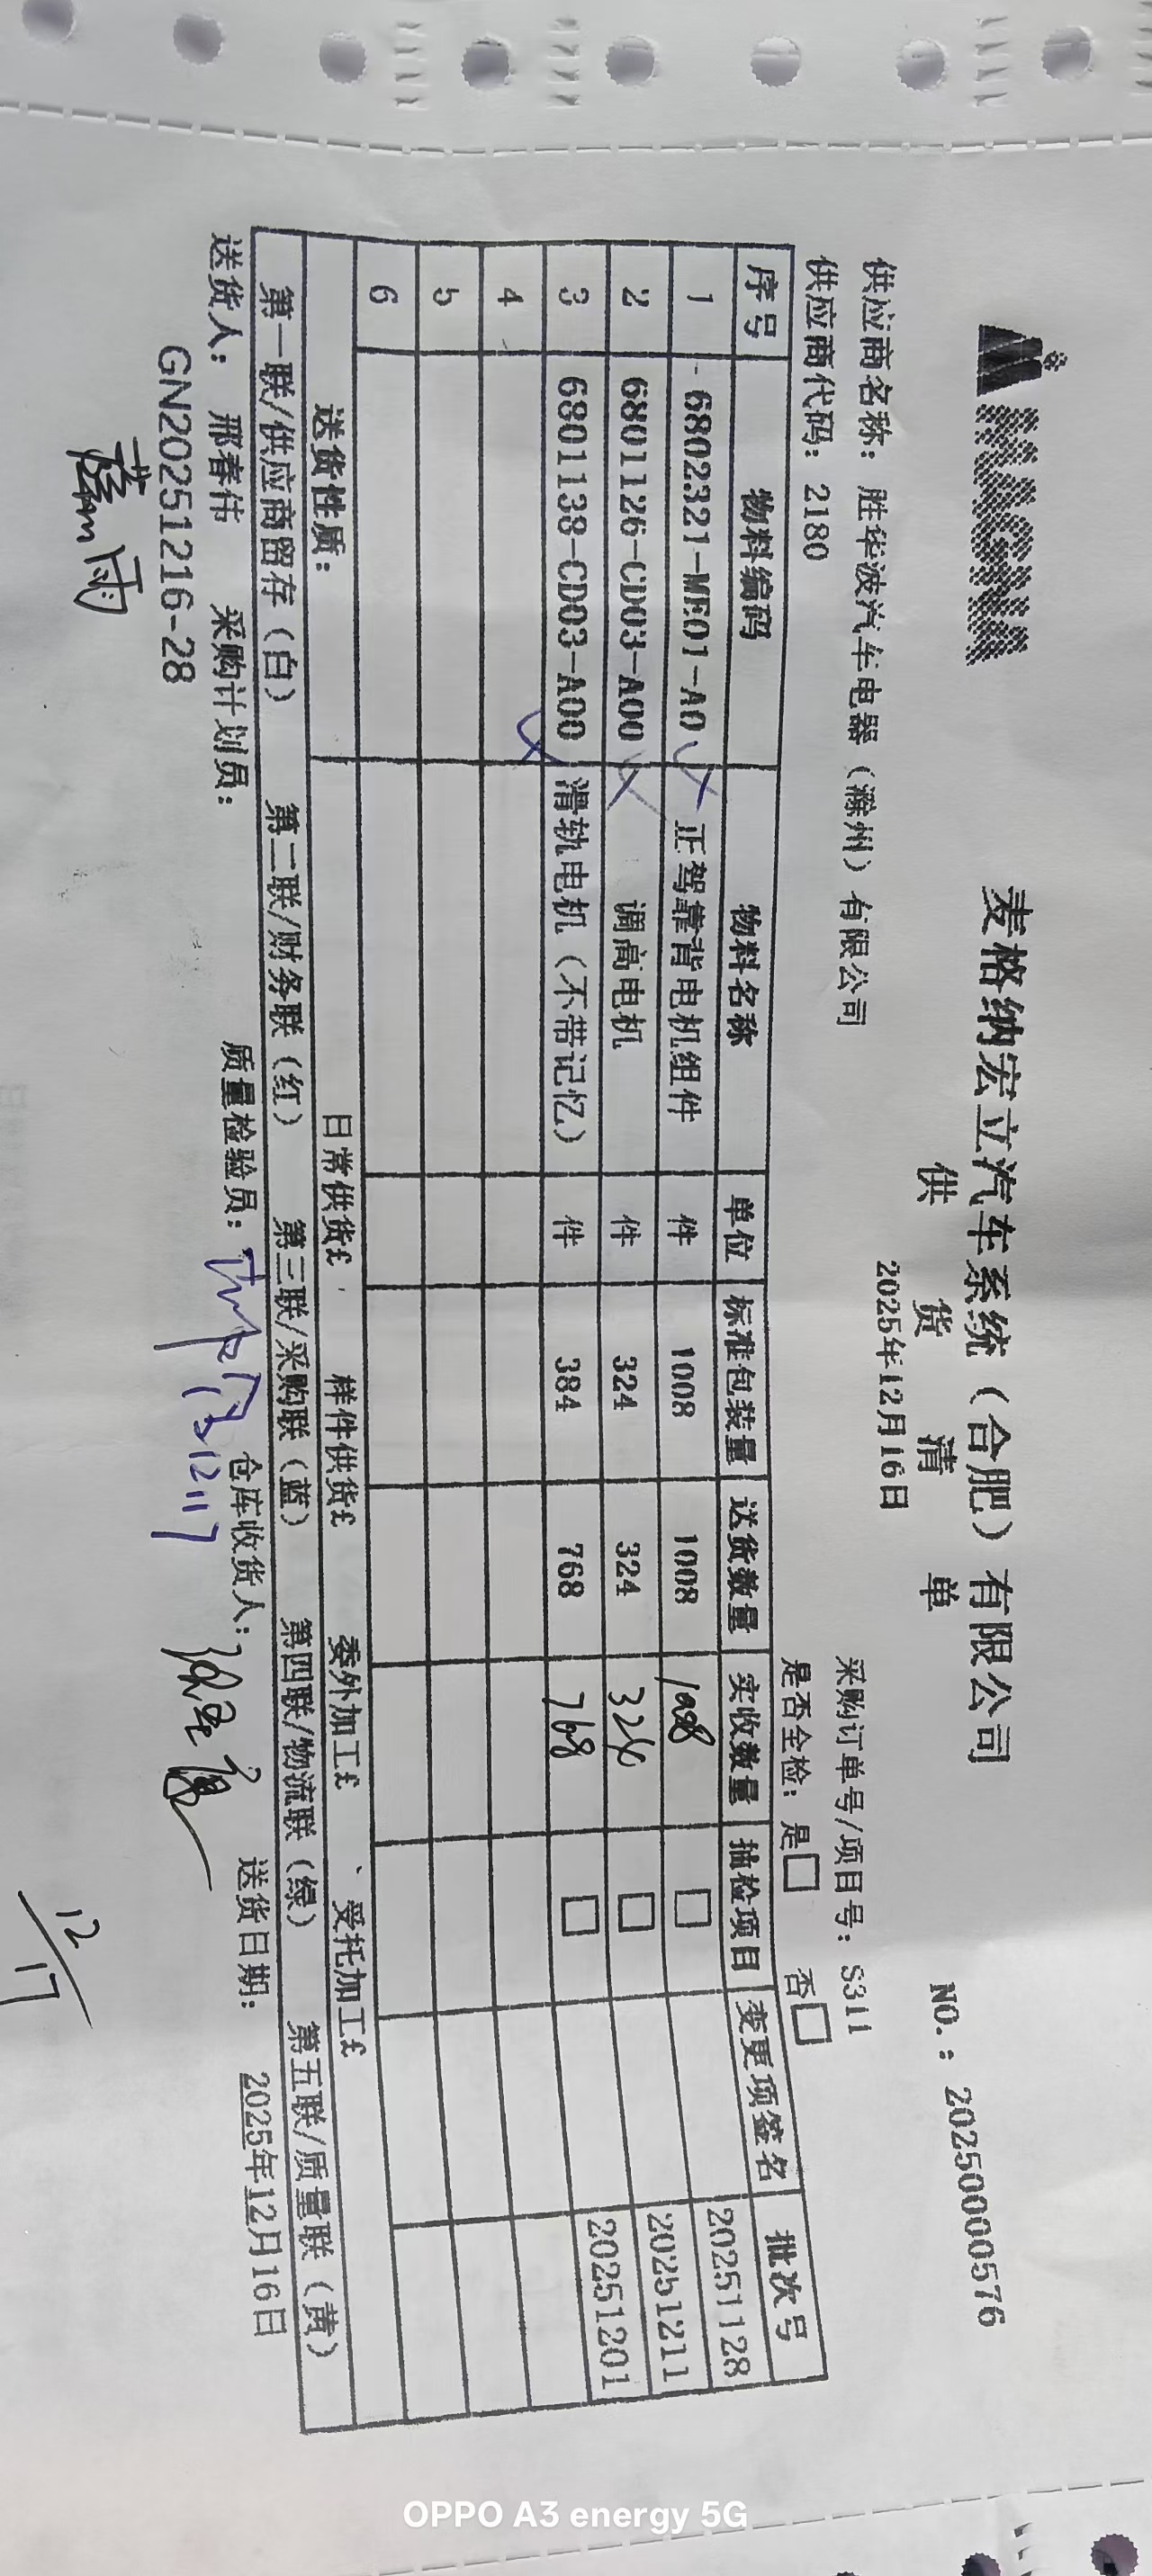 MAGNA
麦格纳宏立汽车系统（合肥）有限公司
供 货 清 单
NO.：20250000576
2025年12月16日
供应商名称：胜华波汽车电器（滁州）有限公司
采购订单号/项目号：S311
供应商代码：2180
是否全检：是□ 否□
序号 物料编码 物料名称 单位 标准包装量 送货数量 实收数量 抽检项目 变更项签名 批次号
1 6802321-ME01-A0 正驾靠背电机组件 件 1008 1008 1008 □ 20251128
2 6801126-CD03-A00 调高电机 件 324 324 324 □ 20251211
3 6801138-CD03-A00 滑轨电机（不带记忆） 件 384 768 768 □ 20251201
4
5
6
送货性质： 日常供货£ 样件供货£ 委外加工£ 、受托加工£
第一联/供应商留存（白） 第二联/财务联（红） 第三联/采购联（蓝） 第四联/物流联（绿） 第五联/质量联（黄）
送货人： 邢春伟 采购计划员： 质量检验员： 1217 仓库收货人： 送货日期： 2025年12月16日
GN20251216-28
12/17
OPPO A3 energy 5G